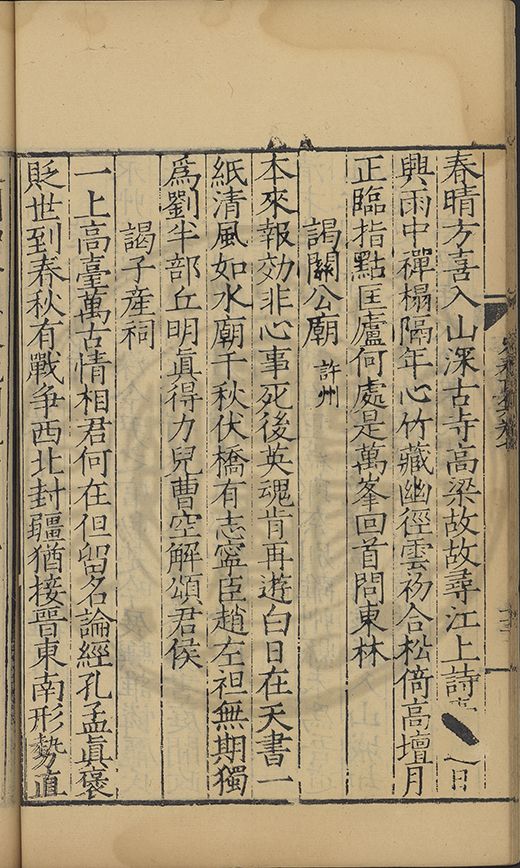 春晴方喜入山深古寺高梁故故尋江上詩日
興雨中禪榻隔年心竹藏幽徑雲初合松倚高壇月
正臨指點匡廬何處是萬峯回首問東林
謁關公廟 許州
本來報効非心事死後英魂肯再遊白日在天書一
紙清風如水廟千秋伏橋有志寧臣趙左袒無期獨
爲劉半部丘明眞得力兒曹空解頌君侯
謁子產祠
一上高臺萬古情相君何在但留名論經孔孟眞褒
貶世到春秋有戰争西北封疆猶接晉東南形勢直